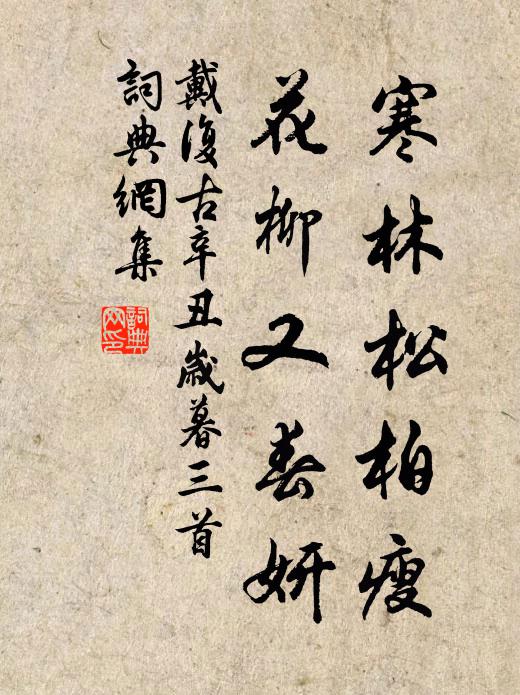 寒林松柏瘦
花柳又春妍
戴復古辛丑歲暮三首
詞典網集
詞典
网印